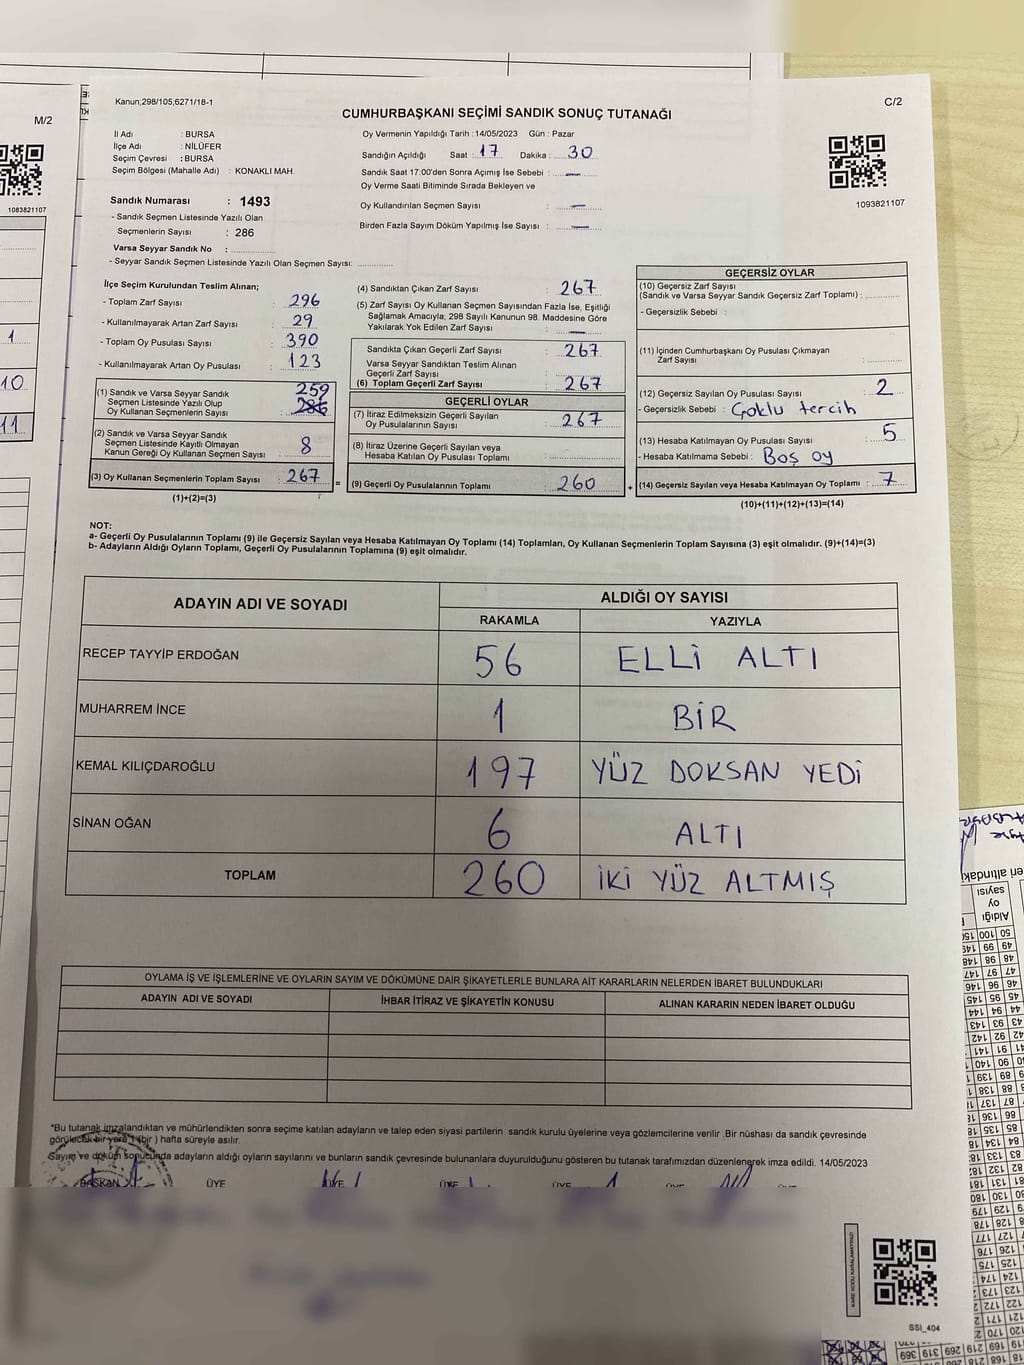 Kanun;298/105,6271/18-1
C/2
M/2
CUMHURBAŞKANI SEÇİMİ SANDIK SONUÇ TUTANAĞI
İl Adı : BURSA
İlçe Adı : NİLÜFER
Seçim Çevresi : BURSA
Seçim Bölgesi (Mahalle Adı) : KONAKLI MAH.
Oy Vermenin Yapıldığı Tarih : 14/05/2023 Gün : Pazar
Sandığın Açıldığı Saat : 17 Dakika : 30
Sandık Saat 17:00'den Sonra Açımış İse Sebebi : —
Oy Verme Saati Bitiminde Sırada Bekleyen ve
Oy Kullandırılan Seçmen Sayısı : —
Birden Fazla Sayım Döküm Yapılmış İse Sayısı : —
1083821107
1093821107
Sandık Numarası : 1493
- Sandık Seçmen Listesinde Yazılı Olan
Seçmenlerin Sayısı : 286
Varsa Seyyar Sandık No :
- Seyyar Sandık Seçmen Listesinde Yazılı Olan Seçmen Sayısı:
İlçe Seçim Kurulundan Teslim Alınan;
- Toplam Zarf Sayısı : 296
- Kullanılmayarak Artan Zarf Sayısı : 29
- Toplam Oy Pusulası Sayısı : 390
- Kullanılmayarak Artan Oy Pusulası : 123
(1) Sandık ve Varsa Seyyar Sandık
Seçmen Listesinde Yazılı Olup
Oy Kullanan Seçmenlerin Sayısı : 259
286
(2) Sandık ve Varsa Seyyar Sandık
Seçmen Listesinde Kayıtlı Olmayan
Kanun Gereği Oy Kullanan Seçmen Sayısı : 8
(3) Oy Kullanan Seçmenlerin Toplam Sayısı : 267
(1)+(2)=(3)
(4) Sandıktan Çıkan Zarf Sayısı : 267
(5) Zarf Sayısı Oy Kullanan Seçmen Sayısından Fazla İse, Eşitliği
Sağlamak Amacıyla; 298 Sayılı Kanunun 98. Maddesine Göre
Yakılarak Yok Edilen Zarf Sayısı : —
Sandıkta Çıkan Geçerli Zarf Sayısı : 267
Varsa Seyyar Sandıktan Teslim Alınan
Geçerli Zarf Sayısı :
(6) Toplam Geçerli Zarf Sayısı : 267
GEÇERLİ OYLAR
(7) İtiraz Edilmeksizin Geçerli Sayılan
Oy Pusulalarının Sayısı : 267
(8) İtiraz Üzerine Geçerli Sayılan veya
Hesaba Katılan Oy Pusulası Toplamı :
(9) Geçerli Oy Pusulalarının Toplamı : 260
GEÇERSİZ OYLAR
(10) Geçersiz Zarf Sayısı
(Sandık ve Varsa Seyyar Sandık Geçersiz Zarf Toplamı) :
- Geçersizlik Sebebi :
(11) İçinden Cumhurbaşkanı Oy Pusulası Çıkmayan
Zarf Sayısı :
(12) Geçersiz Sayılan Oy Pusulası Sayısı : 2
- Geçersizlik Sebebi : Çoklu tercih
(13) Hesaba Katılmayan Oy Pusulası Sayısı : 5
- Hesaba Katılmama Sebebi : Boş oy
(14) Geçersiz Sayılan veya Hesaba Katılmayan Oy Toplamı : 7
(10)+(11)+(12)+(13)=(14)
NOT:
a- Geçerli Oy Pusulalarının Toplamı (9) ile Geçersiz Sayılan veya Hesaba Katılmayan Oy Toplamı (14) Toplamları, Oy Kullanan Seçmenlerin Toplam Sayısına (3) eşit olmalıdır. (9)+(14)=(3)
b- Adayların Aldığı Oyların Toplamı, Geçerli Oy Pusulalarının Toplamına (9) eşit olmalıdır.
ADAYIN ADI VE SOYADI
ALDIĞI OY SAYISI
RAKAMLA YAZIYLA
RECEP TAYYİP ERDOĞAN 56 ELLİ ALTI
MUHARREM İNCE 1 BİR
KEMAL KILIÇDAROĞLU 197 YÜZ DOKSAN YEDİ
SİNAN OĞAN 6 ALTI
TOPLAM 260 İKİ YÜZ ALTMIŞ
OYLAMA İŞ VE İŞLEMLERİNE VE OYLARIN SAYIM VE DÖKÜMÜNE DAİR ŞİKAYETLERLE BUNLARA AİT KARARLARIN NELERDEN İBARET BULUNDUKLARI
ADAYIN ADI VE SOYADI İHBAR İTİRAZ VE ŞİKAYETİN KONUSU ALINAN KARARIN NEDEN İBARET OLDUĞU
*Bu tutanak imzalandıktan ve mühürlendikten sonra seçime katılan adayların ve talep eden siyasi partilerin sandık kurulu üyelerine veya gözlemcilerine verilir .Bir nüshası da sandık çevresinde
görülecek bir yere 1 (bir ) hafta süreyle asılır.
Sayım ve döküm sonucunda adayların aldığı oyların sayılarını ve bunların sandık çevresinde bulunanlara duyurulduğunu gösteren bu tutanak tarafımızdan düzenlenerek imza edildi. 14/05/2023
BAŞKAN ÜYE ÜYE ÜYE ÜYE ÜYE
KARE KODU KARALAMAYINIZ!
SSI_404